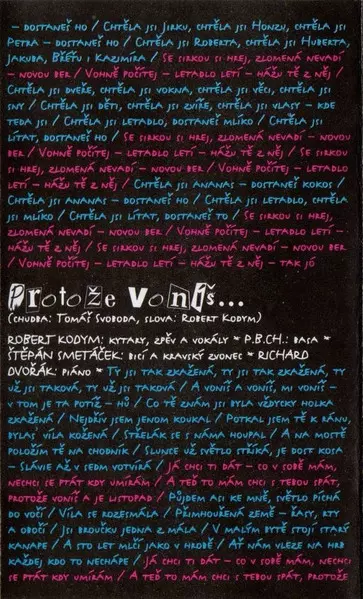 – dostaneš ho / Chtěla jsi Jirku, chtěla jsi Honzu, chtěla jsi
Petra – dostaneš ho / Chtěla jsi Roberta, chtěla jsi Huberta,
Jakuba, Břéťu i Kazimíra / Se sirkou si hrej, zlomená nevadí
– novou ber / Vohně počítej – letadlo letí – hážu tě z něj /
Chtěla jsi dveře, chtěla jsi vokna, chtěla jsi věci, chtěla jsi
sny / Chtěla jsi děti, chtěla jsi zvíře, chtěla jsi vlast – kde
teda jsi / Chtěla jsi letadlo, dostaneš mlíko / Chtěla jsi
lítat, dostaneš ho / Se sirkou si hrej, zlomená nevadí – novou
ber / Vohně počítej – letadlo letí – hážu tě z něj / Se sirkou
si hrej, zlomená nevadí – novou ber / Vohně počítej – letadlo
letí – hážu tě z něj / Chtěla jsi ananas – dostaneš kokos /
Chtěla jsi ananas – dostaneš ho / Chtěla jsi letadlo, chtěla
jsi mlíko / Chtěla jsi lítat, dostaneš to / Se sirkou si hrej,
zlomená nevadí – novou ber / Vohně počítej – letadlo letí –
hážu tě z něj / Se sirkou si hrej, zlomená nevadí – novou
ber / Vohně počítej – letadlo letí – hážu tě z něj – tak jó
Protože voníš...
(chudba: Tomáš Svoboda, slova: Robert Kodym)
Robert Kodym: kytary, zpěv a vokály * P.B.CH.: basa *
Štěpán Smetáček: bicí a kravský zvonec * Richard
Dvořák: piáno * Ty jsi tak zkažená, ty jsi tak zkažená, ty
už jsi taková, ty už jsi taková / A voníš a voníš, mi voníš –
v tom je ta potíž – hů / Co tě znám jsi byla vždycky holka
zkažená / Nejdřív jsem jenom koukal / Potkal jsem tě k ránu,
bylas' víla kožená / Střelák se s náma houpal / A na mostě
položím tě na chodník / Slunce už světlo stříká, je dost kosa
– Slávie až v sedm votvírá / Já chci ti dát – co v sobě mám,
nechci se ptát kdy umírám / A teď to mám chci s tebou spát,
protože voníš a je listopad / Půjdem asi ke mně, světlo píchá
do vočí / Víla se rozesmála / Přimhouřená země – řasy, rty
a obočí / Jsi broučku jedna z mála / V malým bytě stojí starý
kanape / A sto let mlčí jako v hrobě / Ať nám vleze na hrb
každej kdo to nechápe / Já chci ti dát – co v sobě mám, nechci
se ptát kdy umírám / A teď to mám chci s tebou spát, protože